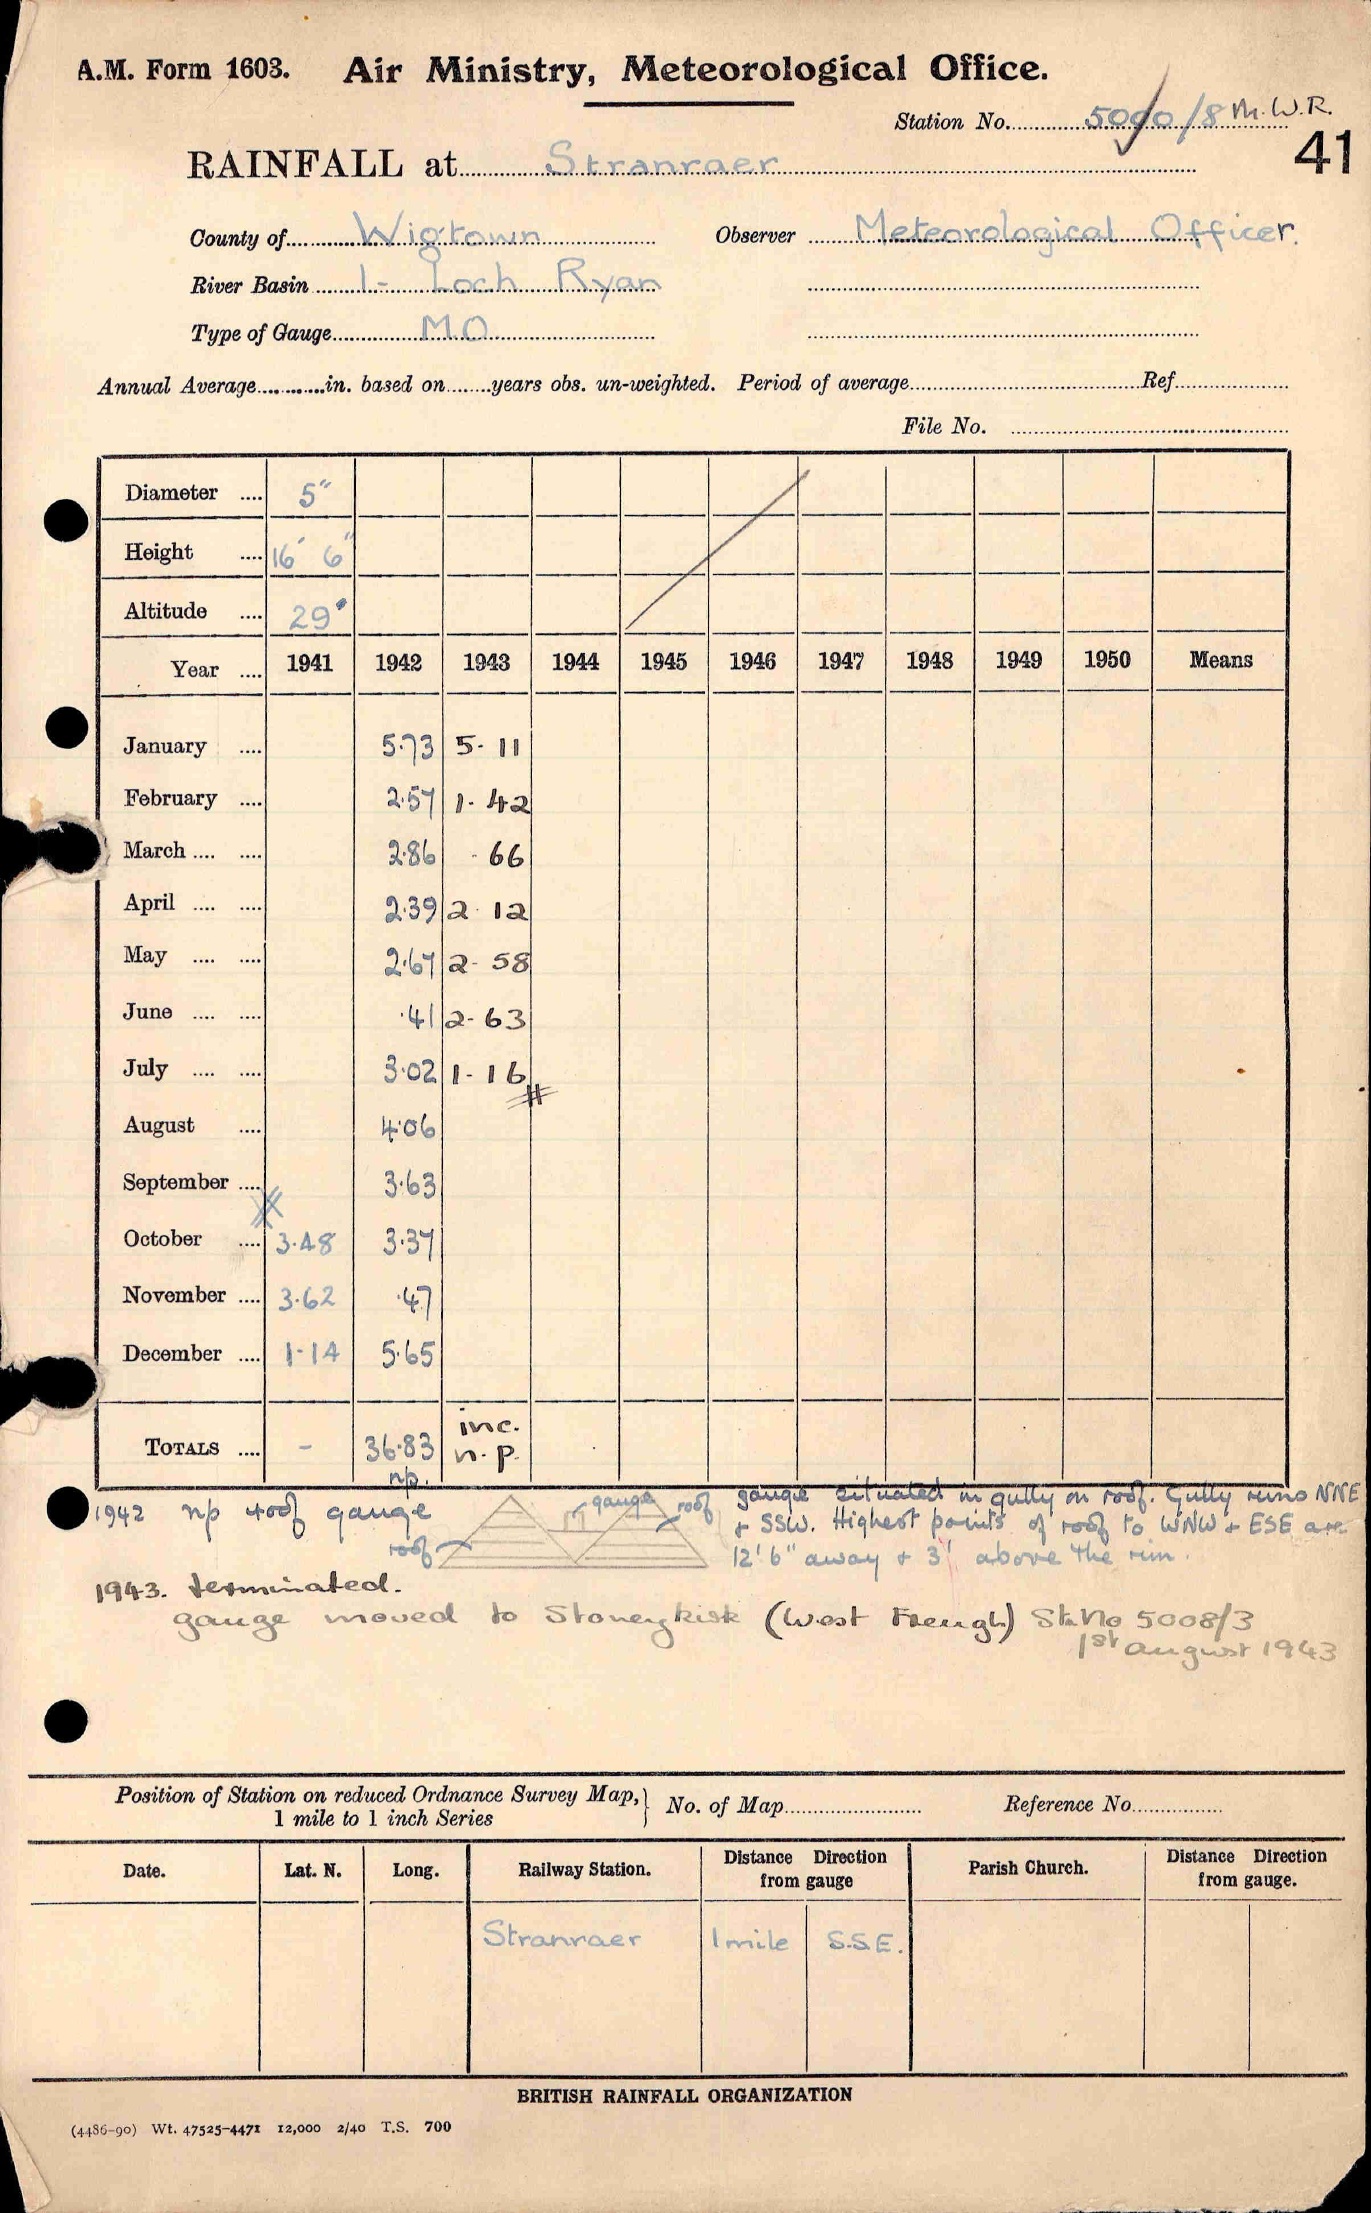 A.M. Form 1603. Air Ministry, Meteorological Office.
Station No. 5000/8 M.W.R.
41
RAINFALL at Stranraer
County of Wigtown Observer Meteorological Officer.
River Basin 1- Loch Ryan
Type of Gauge M.O.
Annual Average..........in. based on.......years obs. un-weighted. Period of average..........Ref..........
File No. ..........
Diameter .... 5"
Height .... 16' 6"
Altitude .... 29'
Year .... 1941 1942 1943 1944 1945 1946 1947 1948 1949 1950 Means
January .... 5.73 5. 11
February .... 2.57 1. 42
March .... .... 2.86 . 66
April .... .... 2.39 2 12
May .... .... 2.67 2. 58
June .... .... .41 2. 63
July .... .... 3.02 1. 16
August .... 4.06
September .... 3.63
October .... 3.48 3.37
November .... 3.62 .47
December .... 1.14 5.65
TOTALS .... - 36.83 np. inc. n.p.
1942 np roof gauge
roof gauge roof
gauge situated in gully on roof. Gully runs NNE
+ SSW. Highest points of roof to WNW + ESE are
12' 6" away + 3' above the rim.
1943. terminated.
gauge moved to Stoneykirk (West Freugh) Sta. No 5008/3
1st august 1943
Position of Station on reduced Ordnance Survey Map, 1 mile to 1 inch Series } No. of Map.......... Reference No..........
Date. Lat. N. Long. Railway Station. Distance Direction from gauge Parish Church. Distance Direction from gauge.
Stranraer 1 mile S.S.E.
BRITISH RAINFALL ORGANIZATION
(4486-90) Wt. 47525-4471 12,000 2/40 T.S. 700